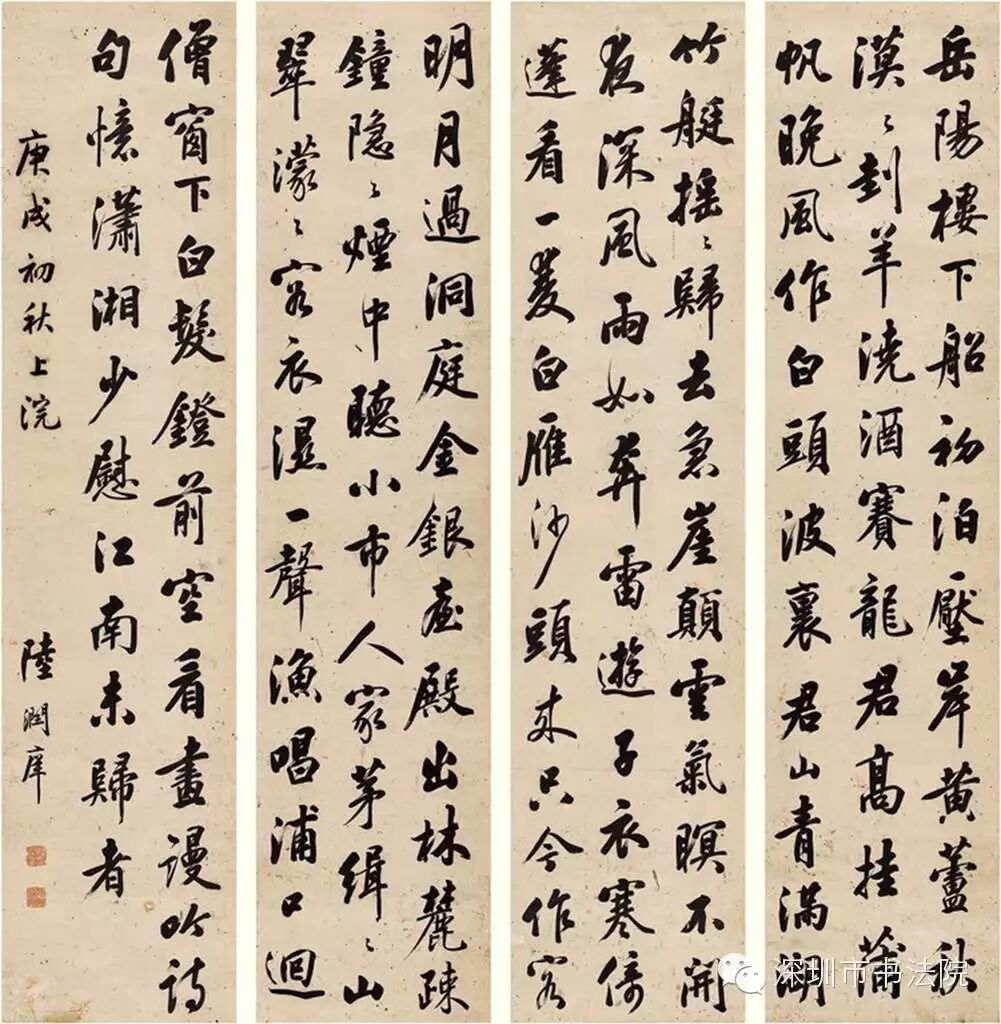 岳陽樓下船初泊壓岸黃蘆秋
漠〻刲羊澆酒賽龍君高挂蒲
帆晚風作白頭波裏君山青滿湖
竹艇搖〻歸去急崖顛雲氣暝不開
夜深風雨如奔雷遊子衣寒倚
蓬看一雙白雁沙頭來只今作客
明月過洞庭金銀臺殿出林麓疎
鐘隱〻煙中聽小市人家茅緝〻山
翠濛〻客衣濕一聲漁唱浦口迴
僧窗下白髮鐙前空看畫謾吟詩
句憶瀟湘少慰江南未歸者
庚戌初秋上浣
陸潤庠
深圳市书法院